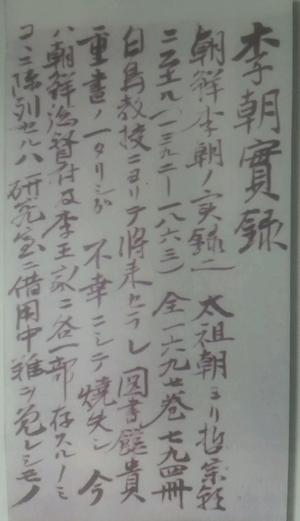 李朝實錄
朝鮮李朝ノ実録ニ 太祖朝ヨリ哲宗朝
ニ至ル(一三九二―一八六三) 全一六九七巻七九四冊
白鳥教授ニヨリテ将来セラレ 図書館貴
重書ノ一タリシガ 不幸ニシテ焼失シ 今
ハ朝鮮総督府及李王家ニ各一部存スルノミ
ココニ陳列セルハ研究室ニ借用中難ヲ免レシモノ